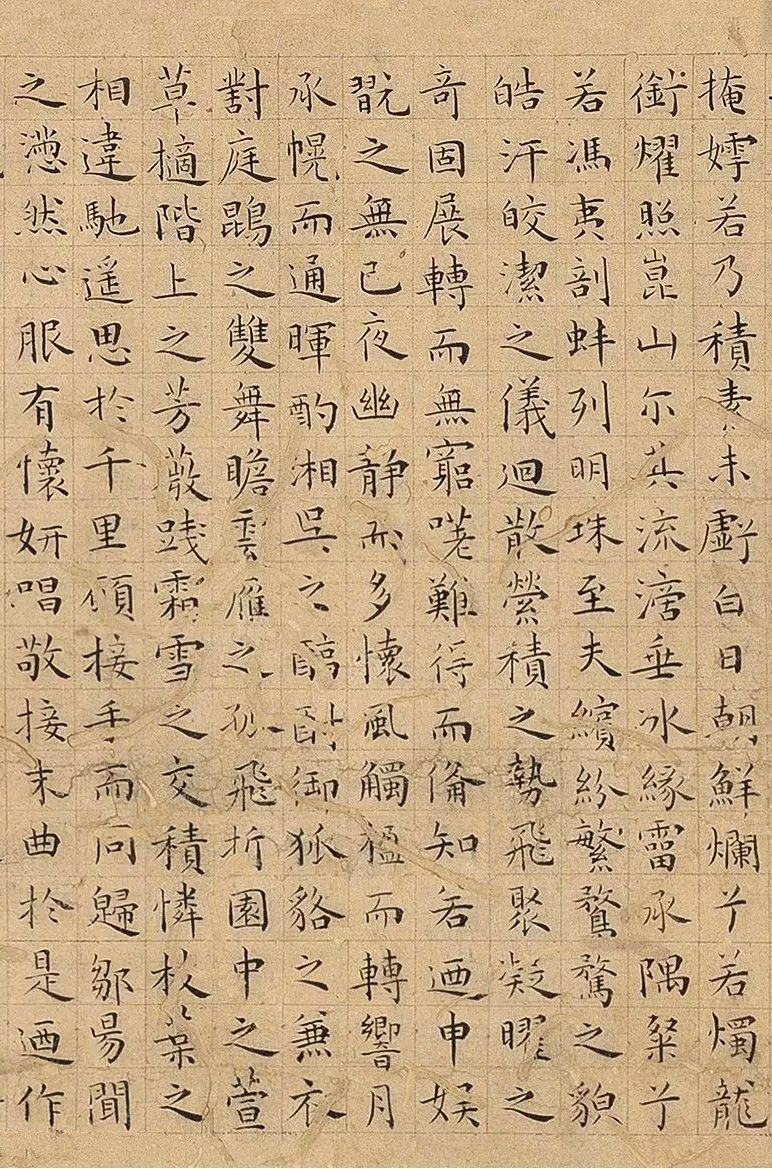 掩嫮若乃積素未虧白日朝鮮爛兮若燭龍
銜燿照崑山尓其流滴垂冰緣霤承隅粲兮
若馮夷剖蚌列明珠至夫繽紛繁騖驚之貌
皓汗皎潔之儀迴散縈積之勢飛聚凝曜之
奇固展轉而無窮嗟難得而俻知若迺申娱
翫之無已夜幽静而多懷風觸楹而轉響月
承幌而通暉酌湘吳之醇酎御狐貉之兼衣
對庭鵾之雙舞瞻雲雁之孤飛折園中之萱
草摘階上之芳薇踐霜雪之交積憐枝葉之
相違馳遥思於千里願接手而同歸鄒陽聞
之懣然心服有懷妍唱敬接末曲於是迺作